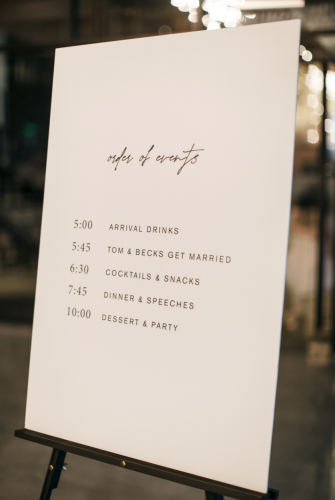 order of events
5:00 ARRIVAL DRINKS
5:45 TOM & BECKS GET MARRIED
6:30 COCKTAILS & SNACKS
7:45 DINNER & SPEECHES
10:00 DESSERT & PARTY